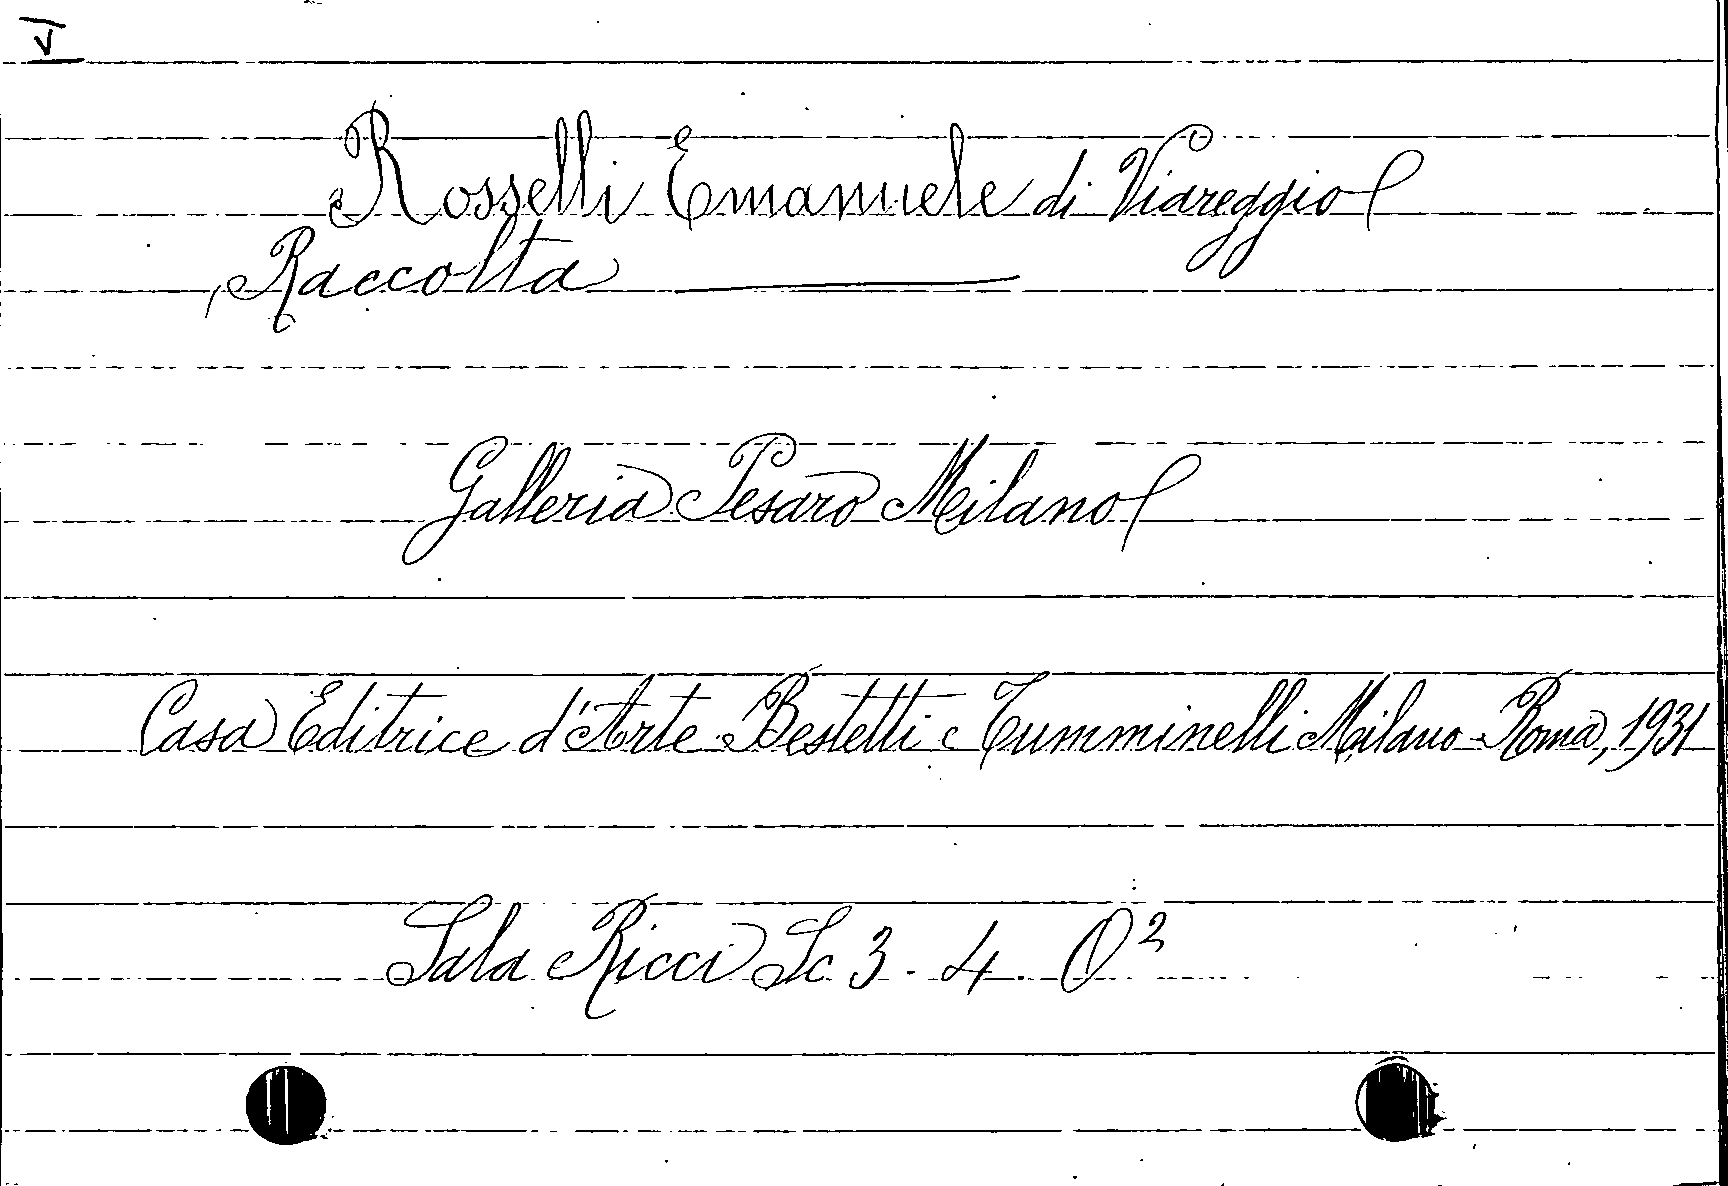 VI
Rosselli Emanuele di Viareggio
Raccolta
Galleria Pesaro Milano
Casa Editrice d'Arte Bestetti e Tumminelli Milano-Roma, 1931
Sala Ricci Sc 3. 4. O²